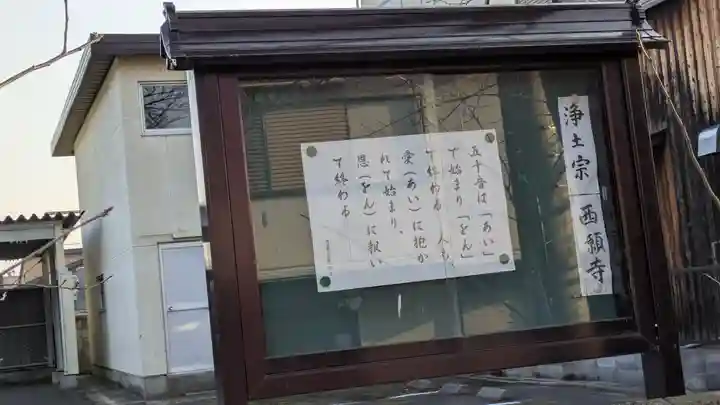 五十音は「あい」
で始まり「をん」
で終わる 人も、
愛(あい)に抱か
れて始まり、
恩(をん)に報い
て終わる
浄土宗 西願寺